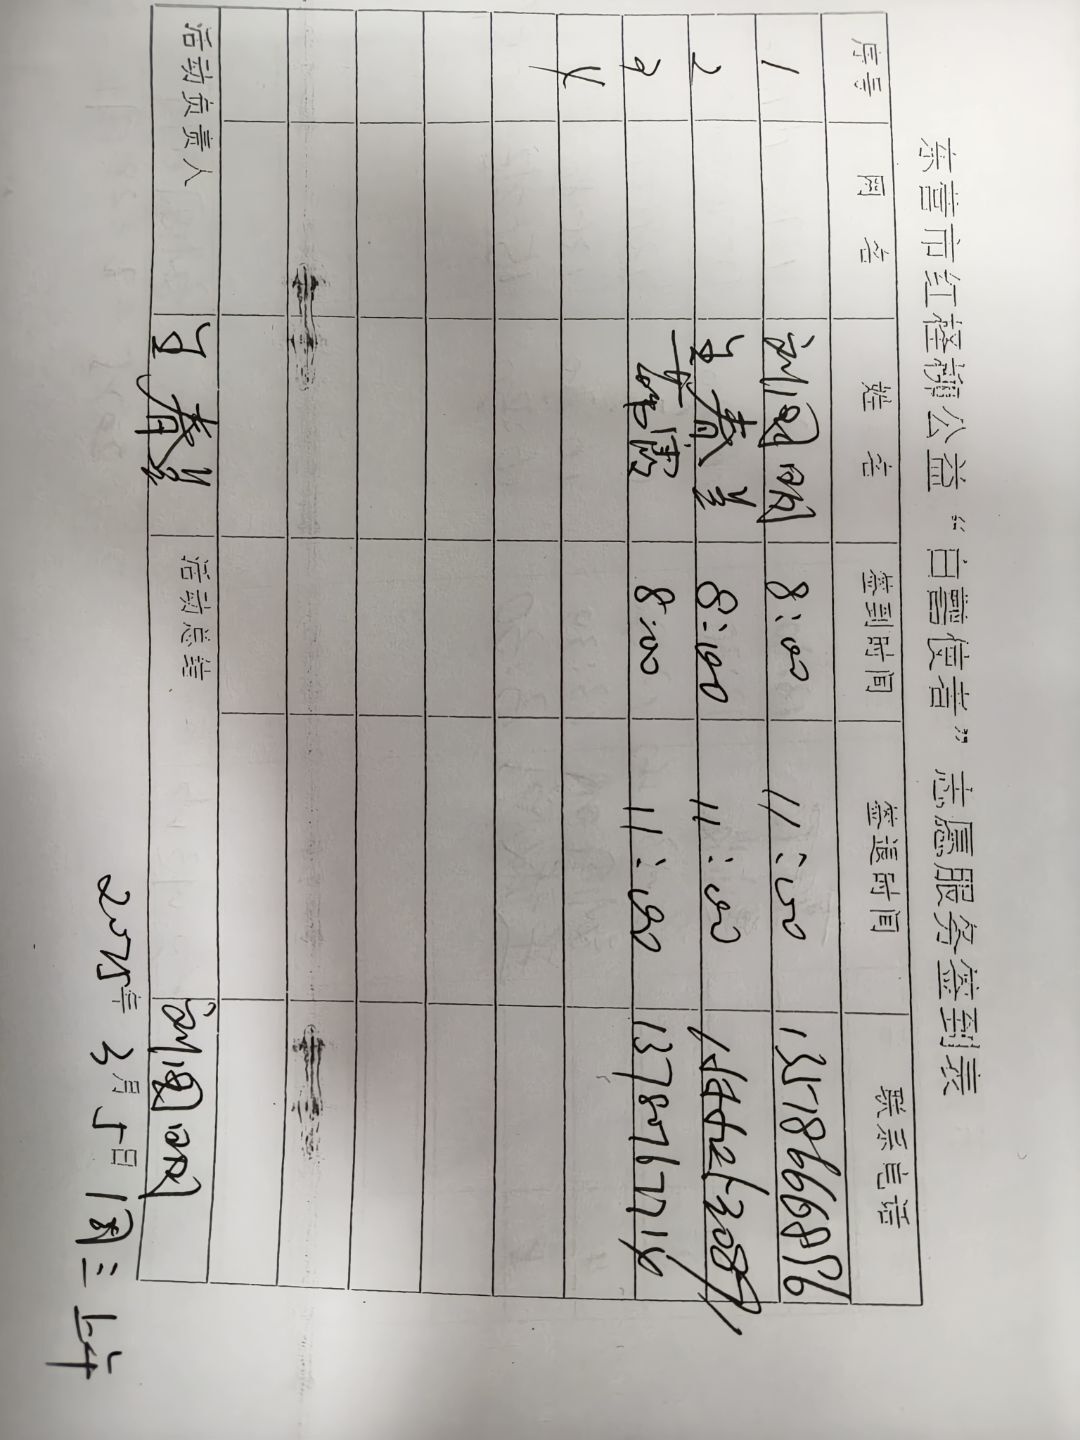 东营市红柽柳公益“白鹭使者”志愿服务签到表
序号 网名 姓名 签到时间 签退时间 联系电话
1 刘国明 8:00 11:00 13518666856
2 王春兰 8:00 11:00
3 8:00 11:00
4
活动负责人 王春兰 活动总结 刘国明
2025年3月5日 周三上午